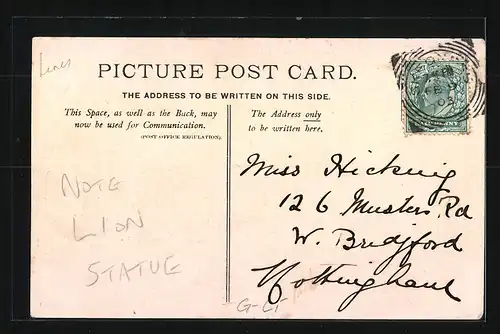 Lines
PICTURE POST CARD.
THE ADDRESS TO BE WRITTEN ON THIS SIDE.
This Space, as well as the Back, may
now be used for Communication.
(POST OFFICE REGULATION).
The Address only
to be written here.
Miss Hicking
126 Musters Rd
W. Bridgford
Nottingham
NOTE
LION
STATUE
G-LT